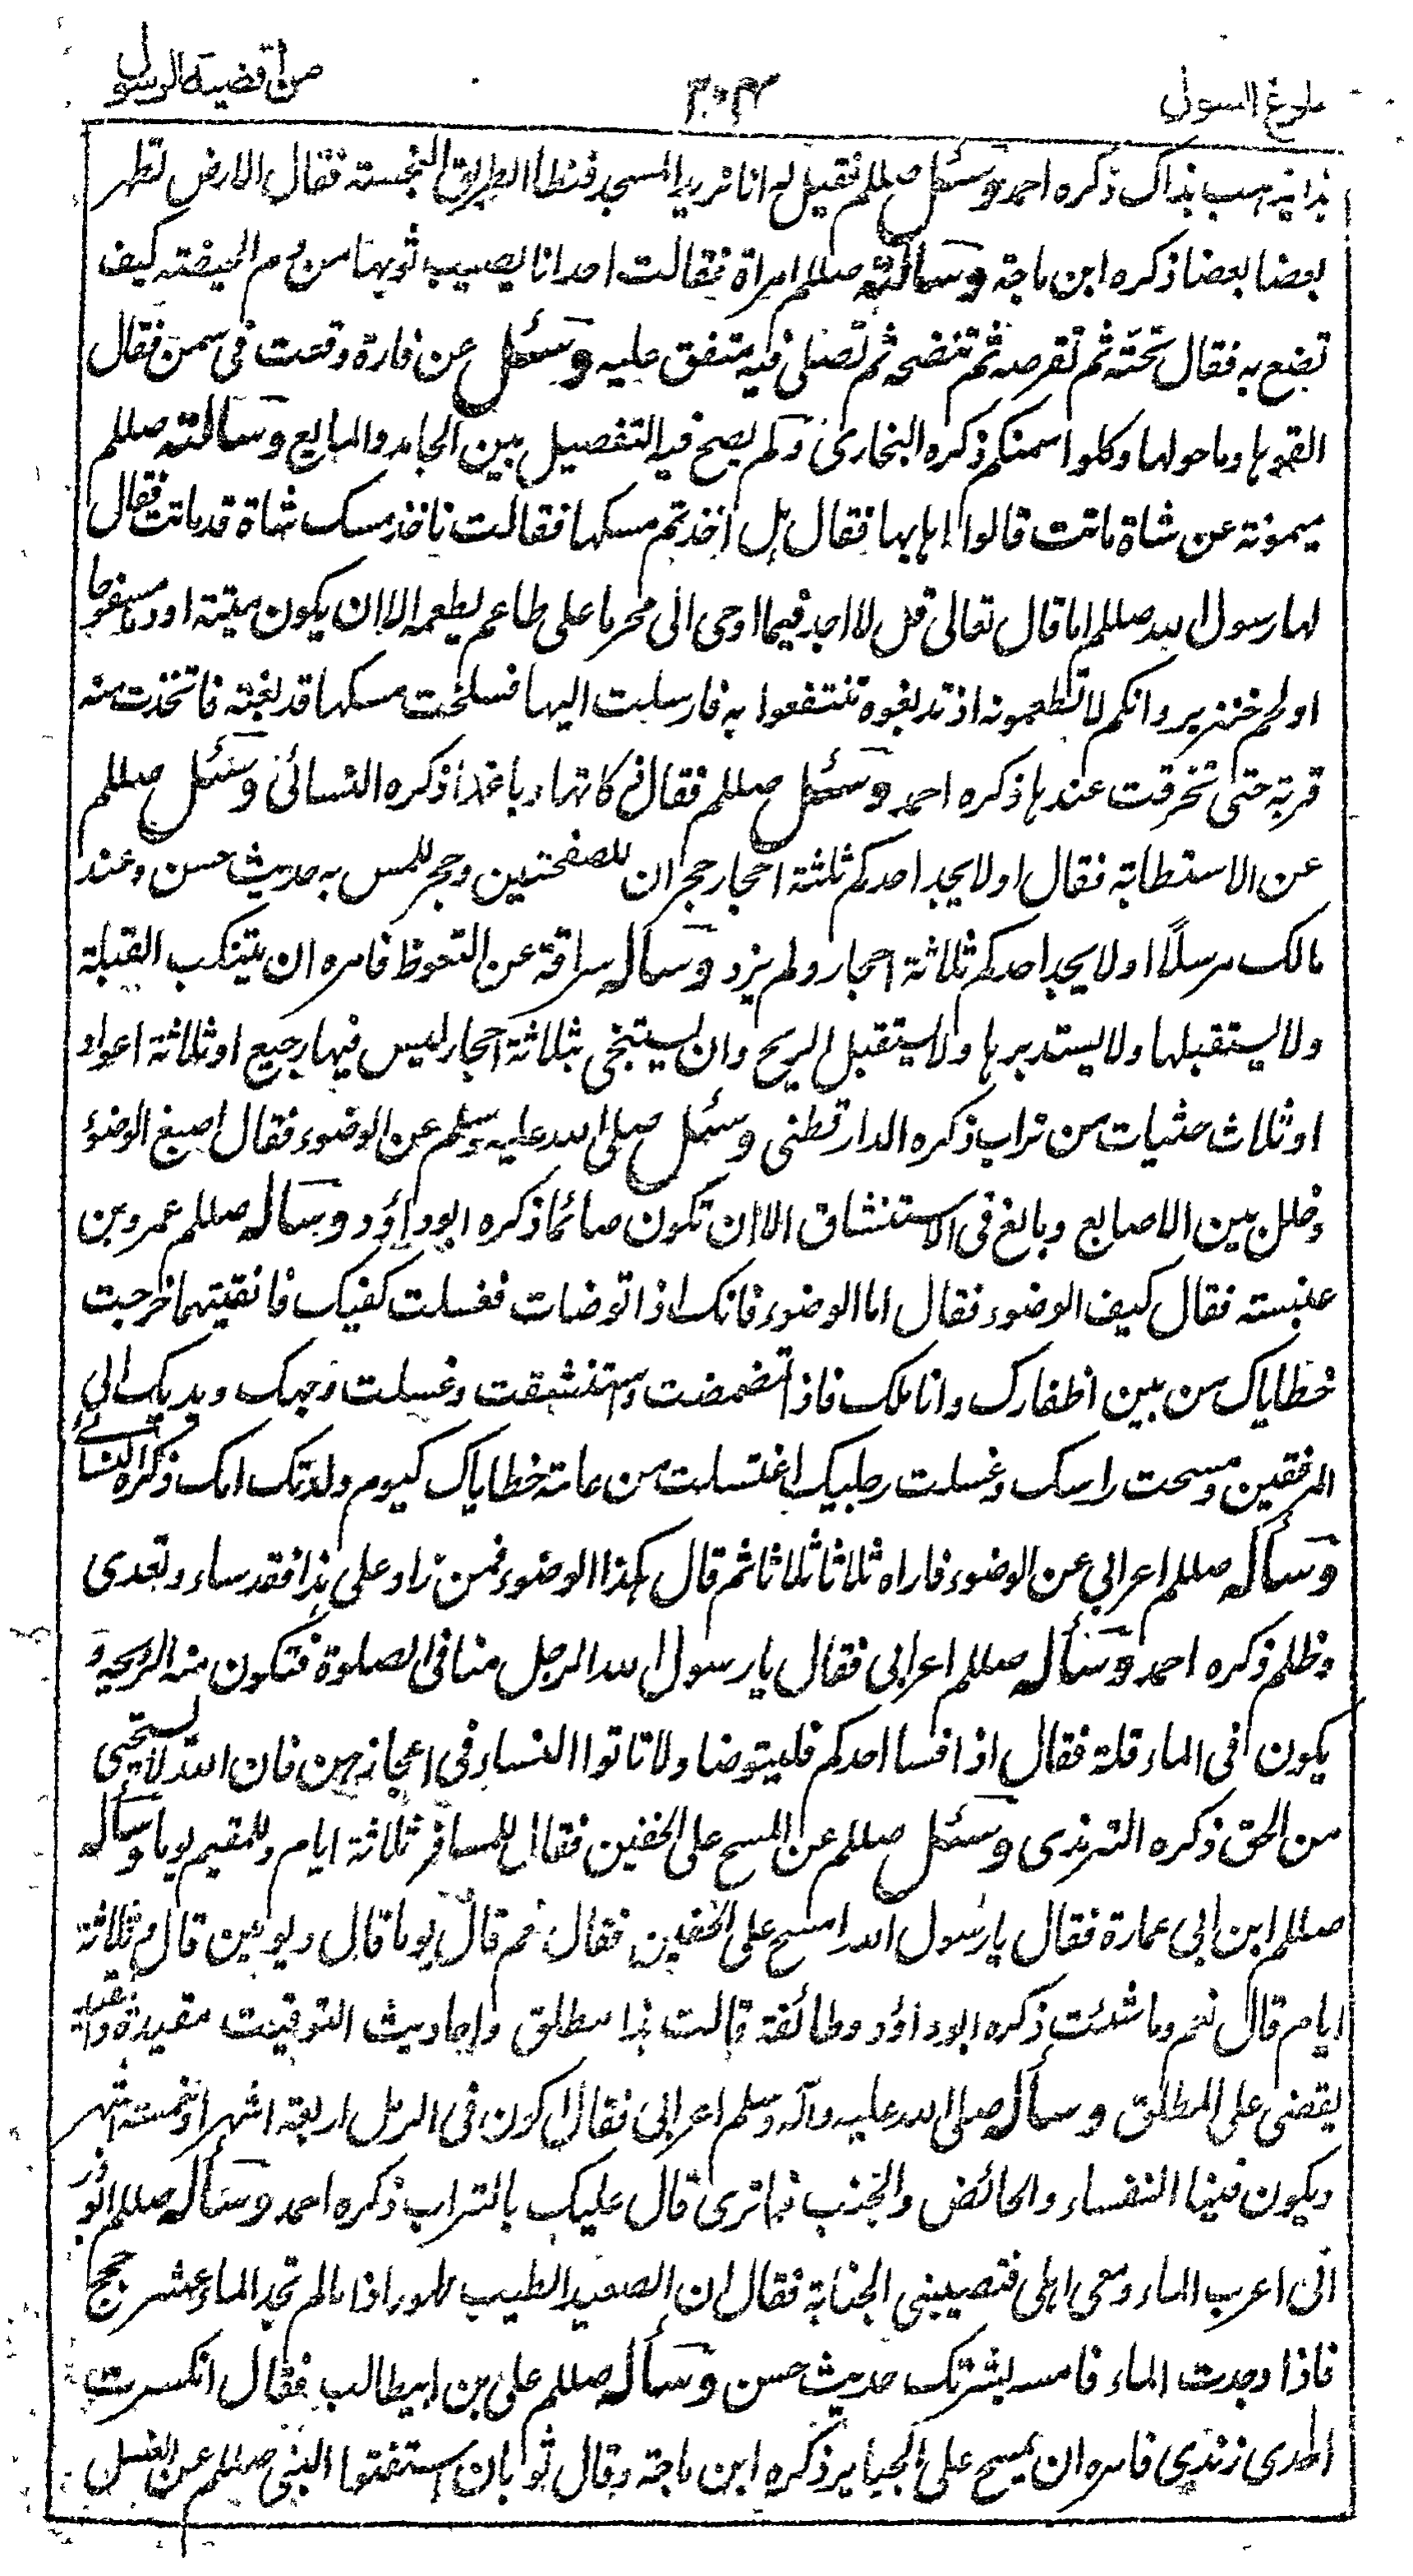 بلوغ السول
من أقضية الرسول
هذا يذهب بذاك ذكره احمد وسئل صللم فقيل له انا نريد المسجد فنطأ الطريق النجسته فقال الارض تطهر
بعضا بعضا ذكره ابن ماجة وسألته صللم امراة فقالت احدانا يصيب ثوبها من دم الحيضة كيف
تصنع به فقال تحته ثم تقرصه ثم تنضحه ثم تصلى فيه متفق عليه وسئل عن فارة وقعت فى سمن فقال
القوها وما حولها وكلوا سمنكم ذكره البخارى ولم يصح فيه التفصيل بين الجامد والمايع وسألته صللم
ميمونة عن شاة ماتت قالوا اهابها فقال هل اخذتم مسكها فقالت ناخذ مسك شاة قد ماتت فقال
لها رسول الله صللم انما قال تعالى قل لا اجد فيما اوحى الى محرما على طاعم يطعمه الا ان يكون ميتة او دما مسفوحا
او لحم خنزير وانكم لا تطعمونه اذ تدبغوه تنتفعوا به فارسلت اليها فسلخت مسكها قدبغته فاتخذت منه
قربة حتى تخرقت عندها ذكره احمد وسئل صللم فقال ذكاتها دباغها ذكره النسائى وسئل صللم
عن الاستطابة فقال اولا يجد احدكم ثلثة احجار حجران للصفحتين وحجر للمس به حديث حسن وعند
مالك مرسلًا اولا يجد احدكم ثلاثة احجار ولم يزد وسأله سراقة عن التغوظ فامره ان يتنكب القبلة
ولا يستقبلها ولا يستدبرها ولا يستقبل الريح وان يستنجى بثلاثة احجار ليس فيها رجيع او ثلاثة اعواد
او ثلاث حثيات من تراب ذكره الدارقطنى وسئل صلى الله عليه وسلم عن الوضوء فقال اصبغ الوضؤ
وخلل بين الاصابع وبالغ فى الاستنشاق الا ان تكون صائما ذكره ابوداؤد وسأله صللم عمرو بن
عنبسته فقال كيف الوضوء فقال اما الوضوء فانك اذا توضات فغسلت كفيك فانقيتهما خرجت
خطاياك من بين اظفارك واناملك فاذا تمضمضت واستنشقت وغسلت وجهك ويديك الى
المرفقين ومسحت راسك وغسلت رجليك اغتسلت من عامة خطاياك كيوم ولدتك امك ذكره النسائے
وسأله صللم اعرابى عن الوضوء فاراه ثلاثا ثلاثا ثم قال هكذا الوضوء فمن زاد على هذا فقد ساء وتعدى
وظلم ذكره احمد وسأله صللم اعرابى فقال يا رسول الله الرجل منا فى الصلوة فتكون منه الرويحة و
يكون فى الماء قلة فقال اذا فسا احدكم فليتوضا ولا تاتوا النساء فى اعجازهن فان الله لا يستحيى
من الحق ذكره الترمذى وسئل صللم عن المسح على الخفين فقال للمسافر ثلاثة ايام وللمقيم يوما وسأله
صللم ابن ابى عمارة فقال يا رسول الله امسح على الخفين فقال نعم قال يوما قال ويومين قال وثلاثة
ايام قال نعم وما شئت ذكره ابوداؤد وطائفة قالت هذا مطلق واحاديث التوقيت مقيدة والمقيد
يقضى على المطلق وسأله صلى الله عليه وآله وسلم اعرابى فقال اكون فى الرمل اربعة اشهر او خمسة اشهر
ويكون فينا النفساء والحائض والجنب فما ترى قال عليك بالتراب ذكره احمد وسأله صللم ابوذر
انى اعرب الماء ومعى اهلى فتصيبنى الجنابة فقال ان الصعيد الطيب طهور اذا ما لم تجد الماء عشر حجج
فاذا وجدت الماء فامسه بشرتك حديث حسن وسأله صللم على بن ابيطالب فقال انكسرت
احدى زندى فامره ان يمسح على الجبائر ذكره ابن ماجة وقال ثوبان استفتوا النبى صللم عن الغسل